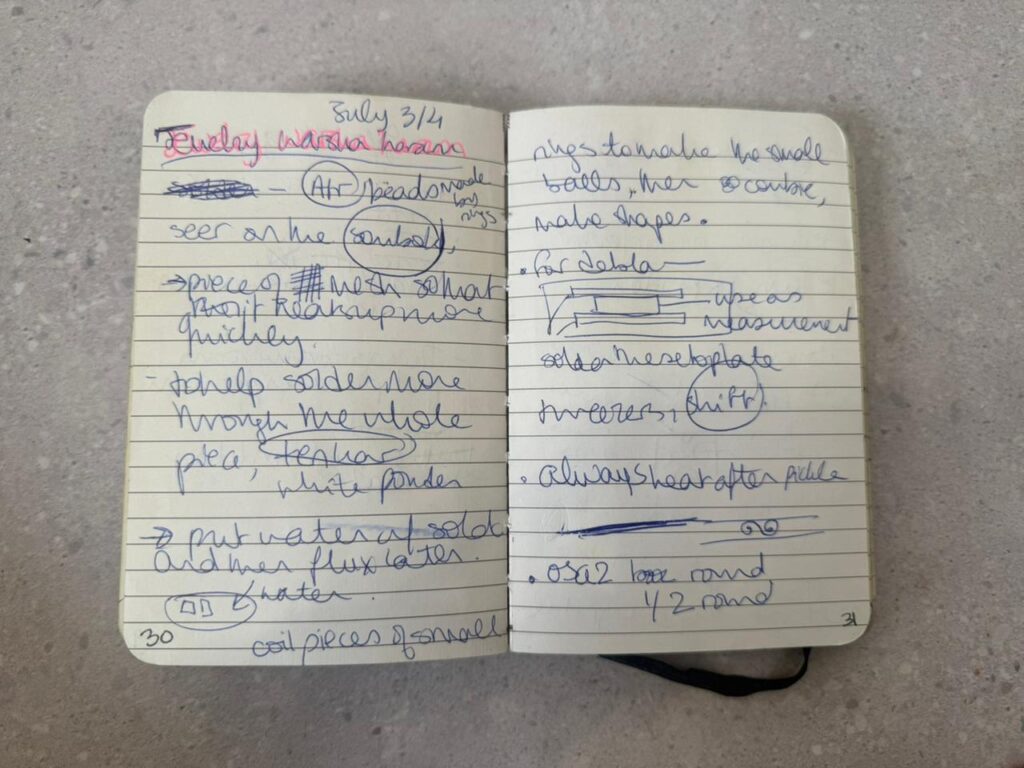 July 3/4
Jewelry
— Atr beads made
by
rings
seer on the
→ piece of mesh so that
it heats up more
quickly.
- to help solder more
through the whole
piece, tenkar
white powder
→ put water w/ solde
And then flux later.
water.
30
coil pieces of small
rings to make the small
balls, then combie,
make shapes.
• for debla —
use as
measurement
solder the setop plate
tweezers, shift.
• always heat after pickle
• osa2 round
1/2 round
31